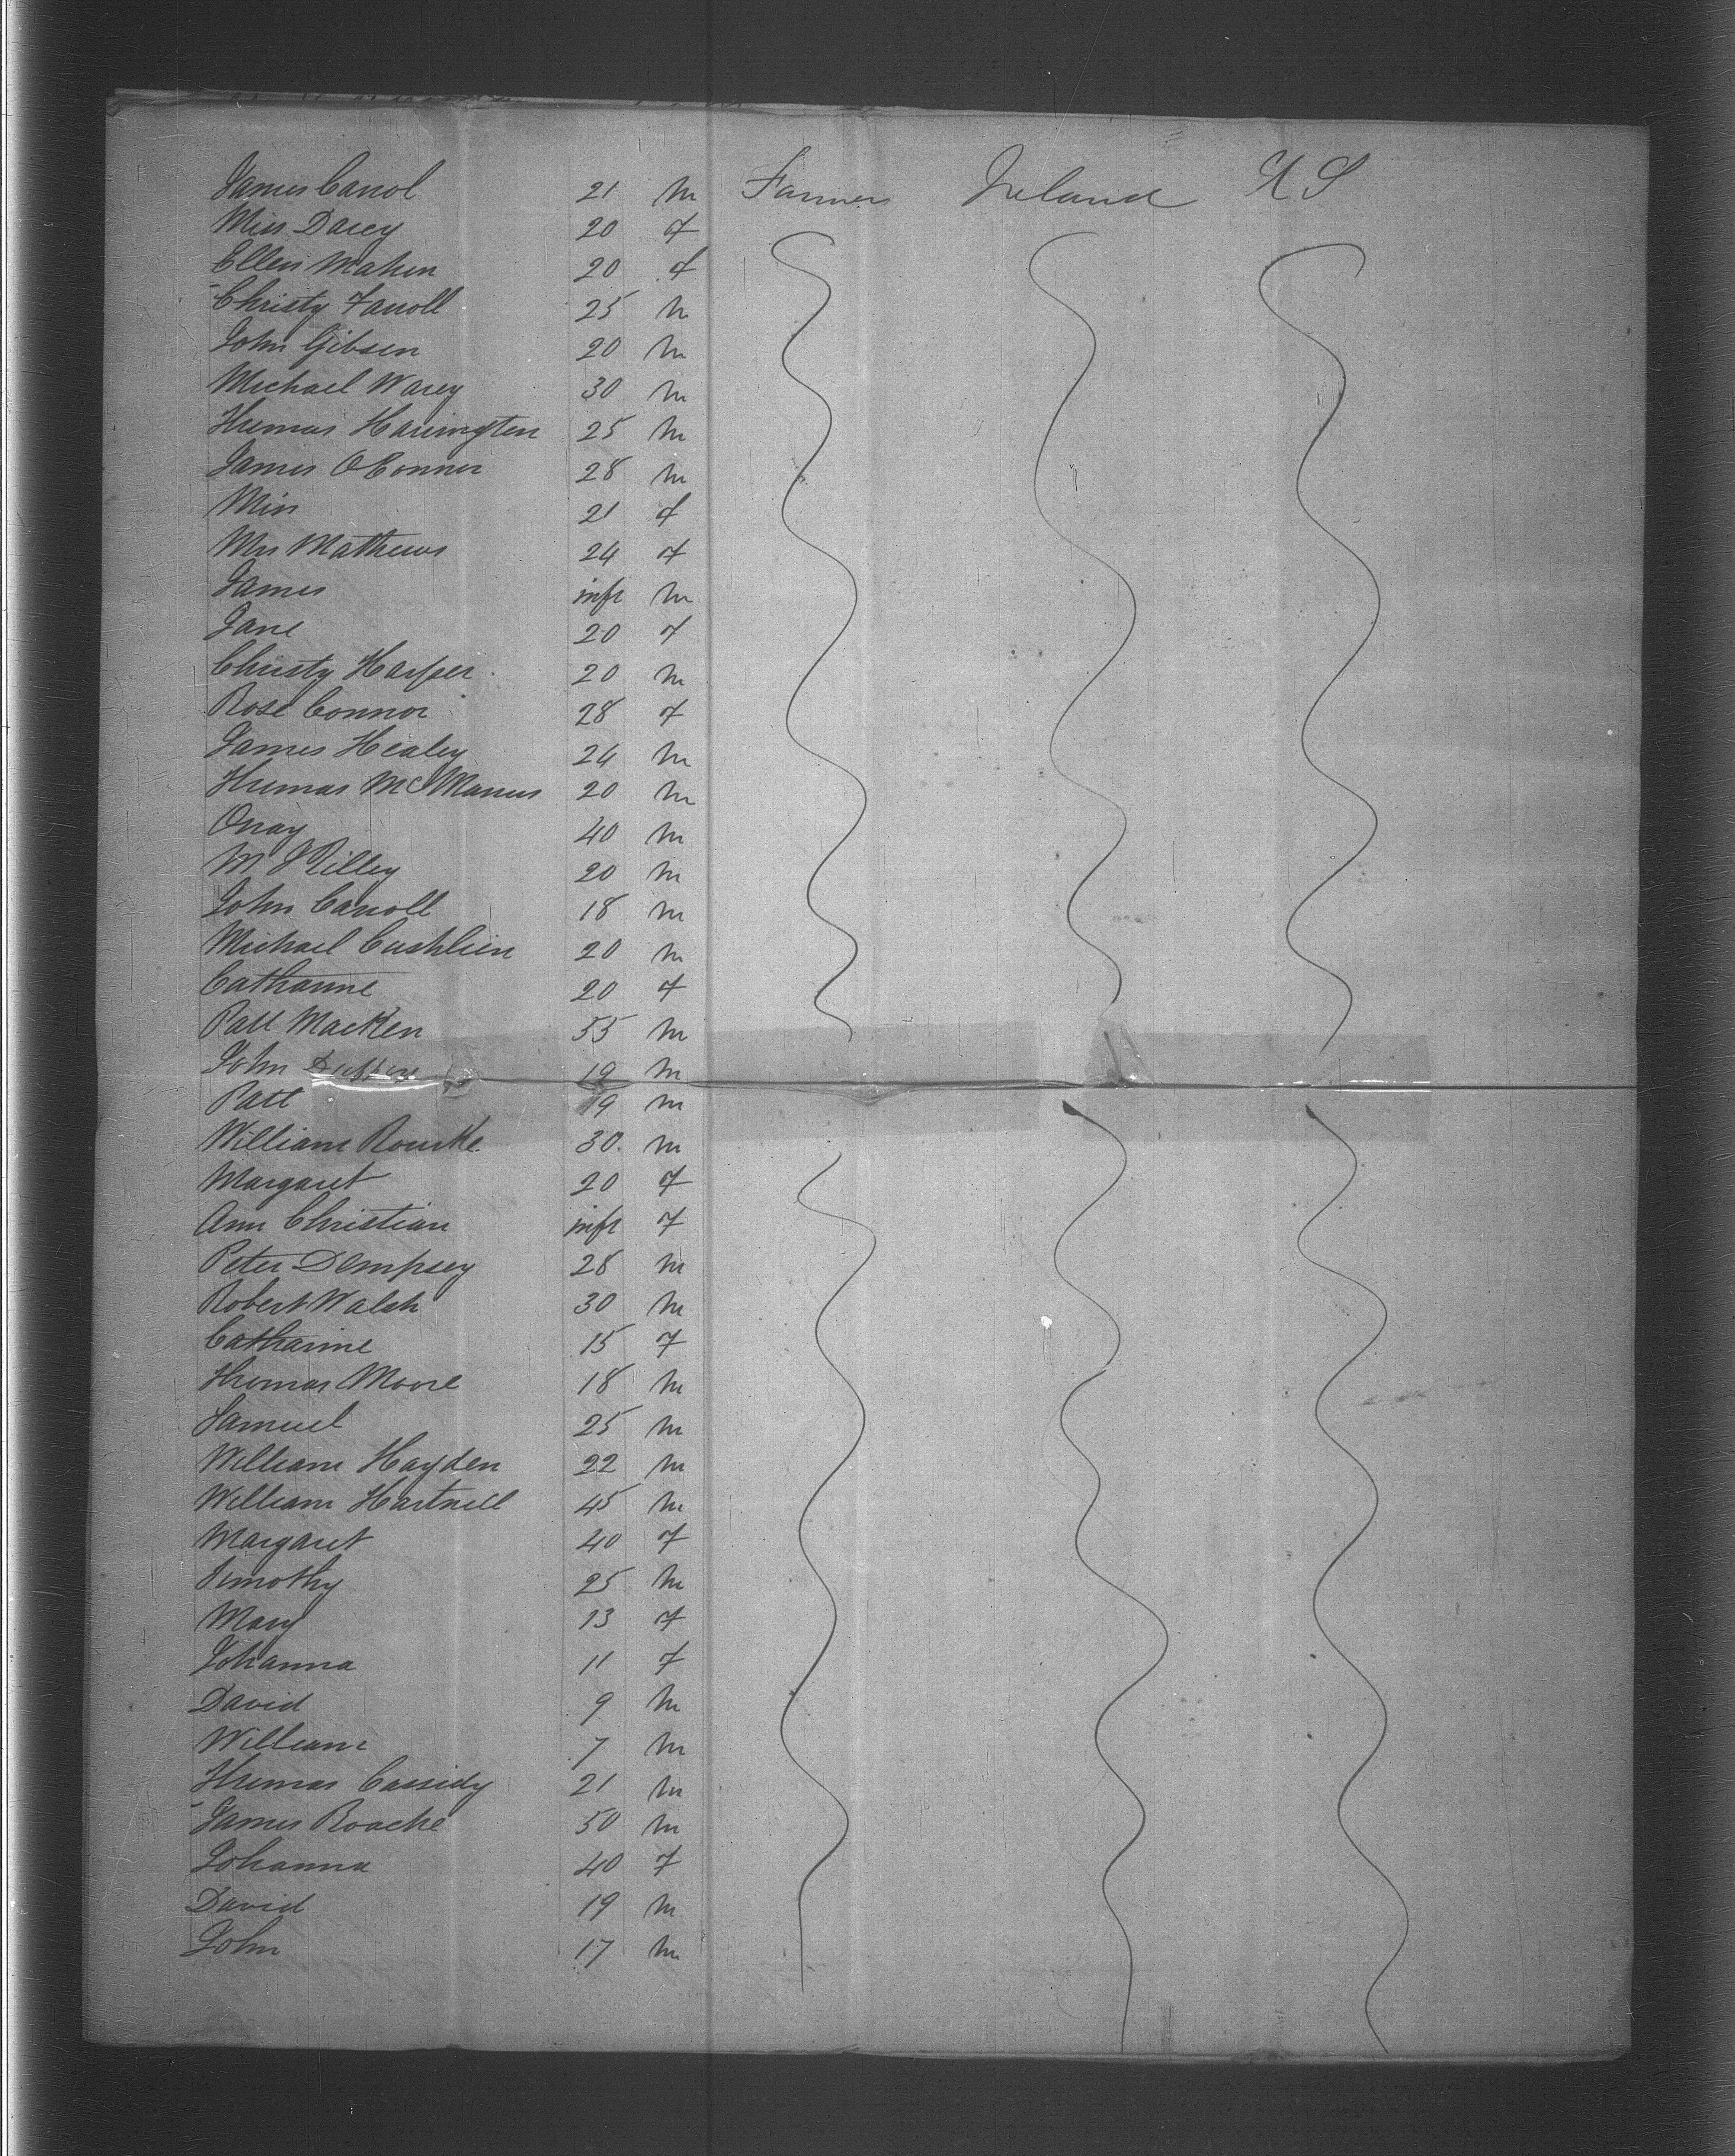 James Carrol 21 m Farmers Ireland U S
Miss Darcy 20 f
Ellen Mahon 20 f
Christy Farroll 25 m
John Gibson 20 m
Michael Warey 30 m
Thomas Harrington 25 m
James OConnor 28 m
Miss 21 f
Mrs Mathews 24 f
James inft m
Jane 20 f
Christy Harper 20 m
Rose Connor 28 f
James Healey 24 m
Thomas McManus 20 m
40 m
M J Rilley 20 m
John Carroll 18 m
Michael Cushlein 20 m
Catharine 20 f
Patt Macken 55 m
John 19 m
Patt 19 m
William Rourke 30 m
Margaret 20 f
Ann Christian inft f
Peter Dempsey 28 m
Robert Walsh 30 m
Catharine 15 f
Thomas Moore 18 m
Samuel 25 m
William Hayden 22 m
William Hartnell 45 m
Margaret 40 f
Timothy 25 m
Mary 13 f
Johanna 11 f
David 9 m
William 7 m
Thomas Cassidy 21 m
James Roache 50 m
Johanna 40 f
David 19 m
John 17 m